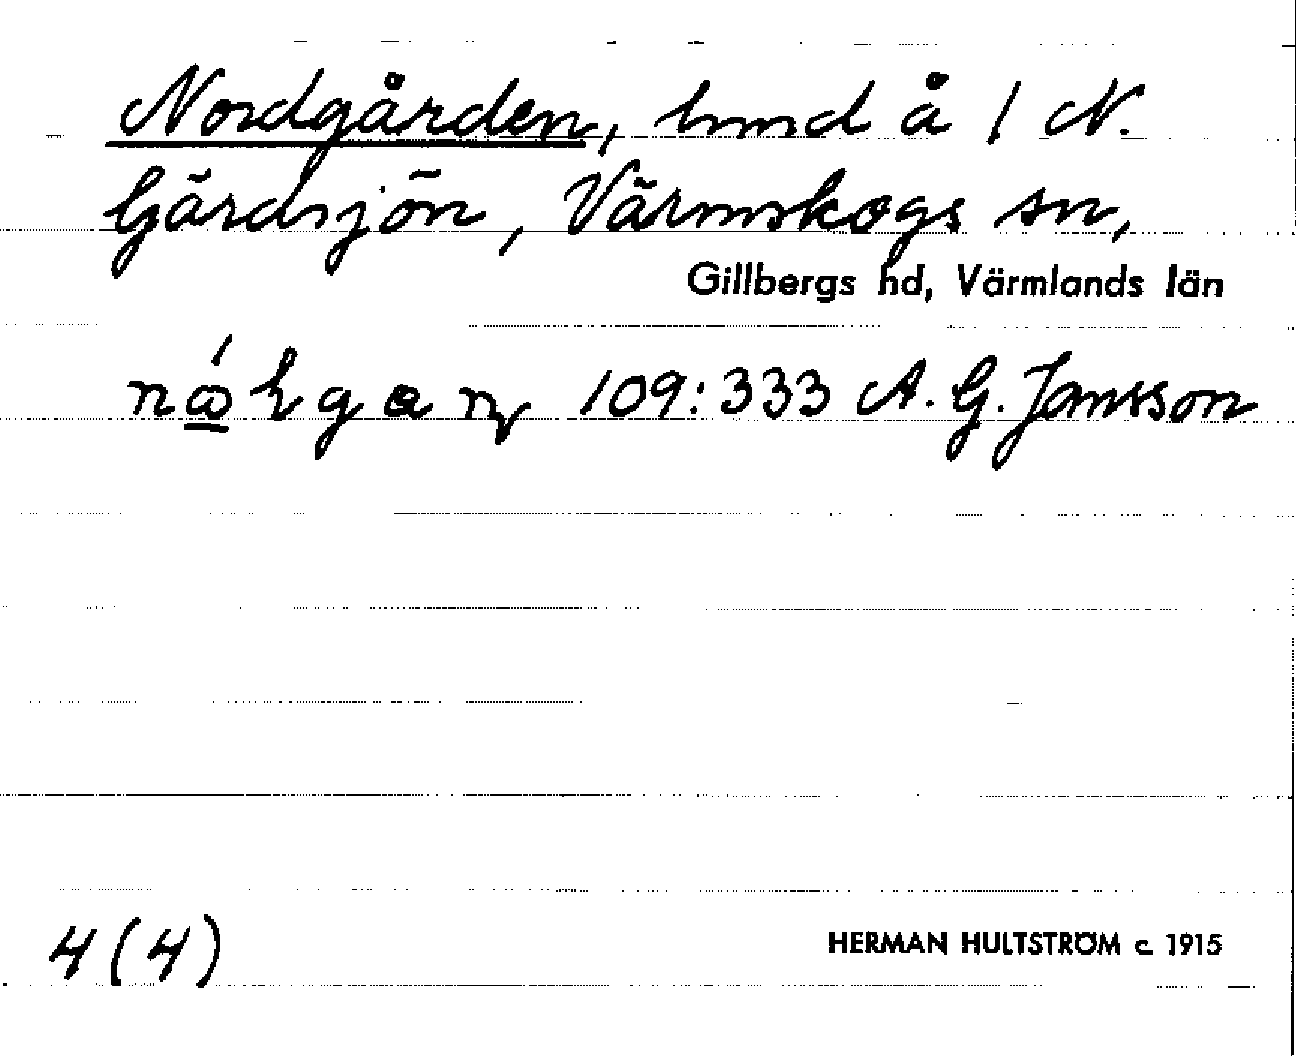 Nordgården, hmd å 1 N.
Gärdsjön, Värmskogs sn,
Gillbergs hd, Värmlands län
109:333 A. G. Jansson
4(4)
HERMAN HULTSTRÖM c. 1915